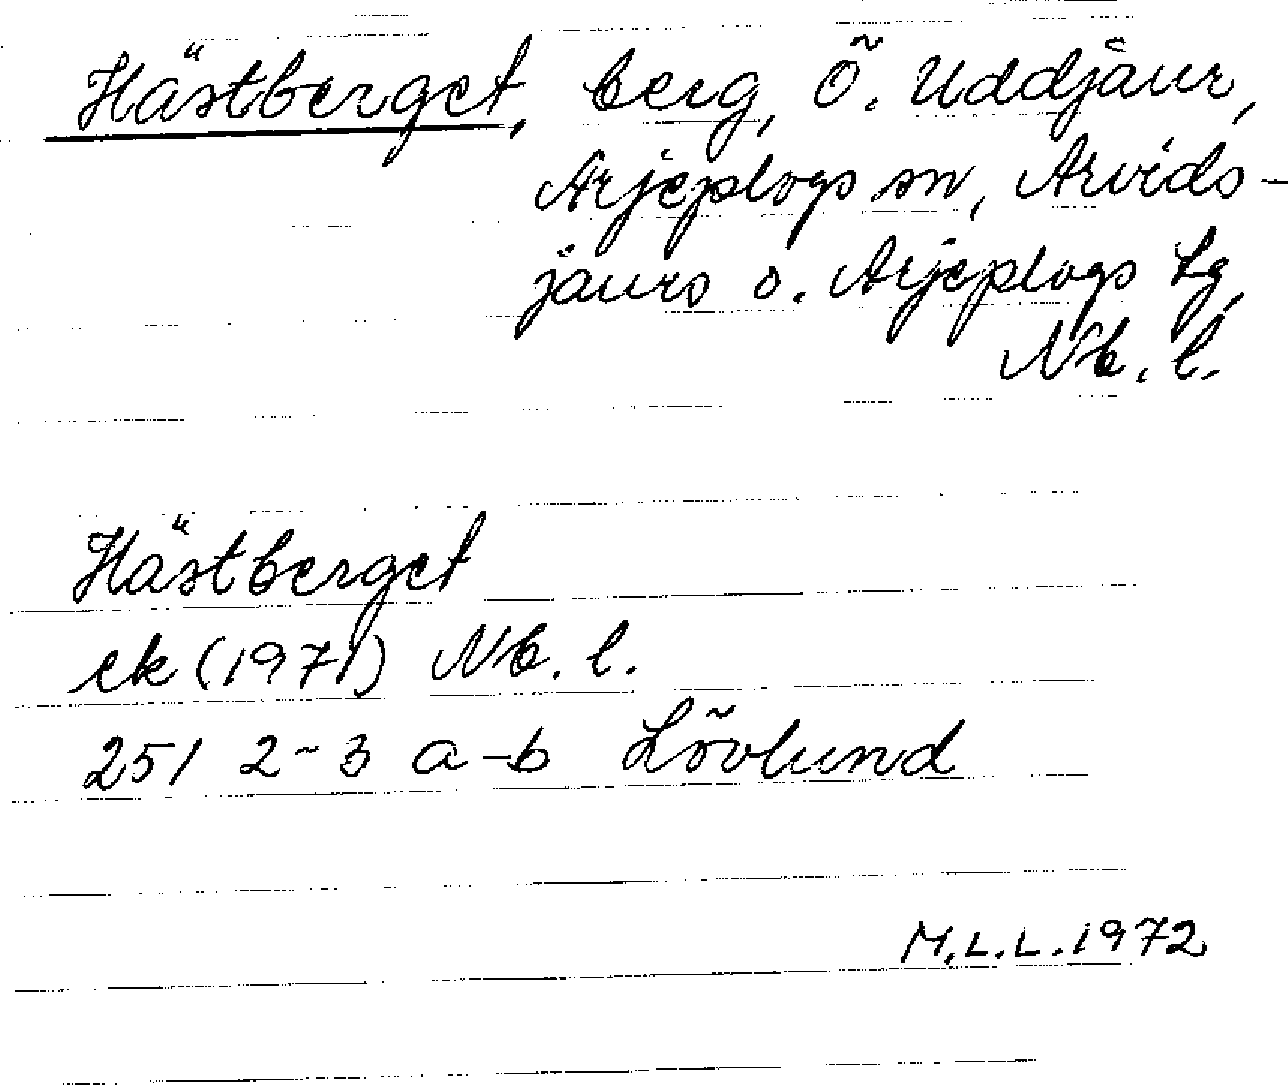 Hästberget, berg, Ö. Uddjaur,
Arjeplogs sn, Arvids-
jaurs o. Arjeplogs tg,
Nb. l.
Hästberget
ek (1971) Nb. l.
251 2-3 a-b Lövlund
M.L.L. 1972